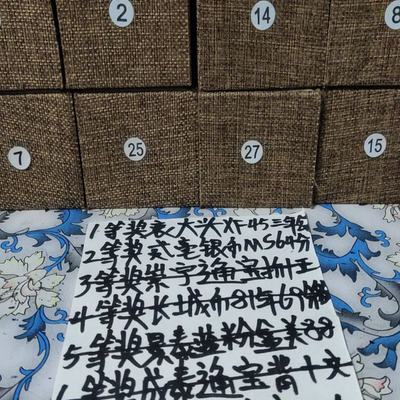 2
14
8
7
25
27
15
1等奖袁大头XF45三年
2等奖贰毫银币MS64分
3等奖崇宁通宝折五
4等奖长城币81年69
5等奖景泰蓝粉金美88
等奖咸泰通宝背十文